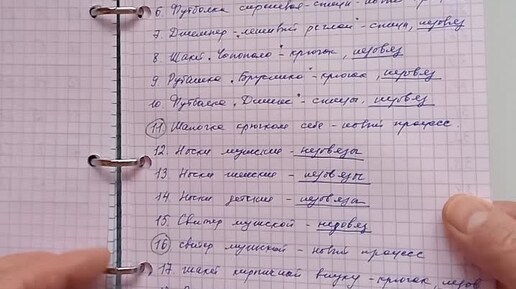 6 Футболка сиреневая - спицы - новый пр
7 Джемпер "ленивый реглан" - спицы, недовяз
8 Жакет "Чопололо" - крючок, недовяз
9 Рубашка "Брусника" - крючок, недовяз
10 Футболка - спицы, недовяз
11 Шапочка крючком себе - новый процесс.
12. Носки мужские - недовязы
13. Носки женские - недовязы
14. Носки детские - недовязы
15. Свитер мужской - недовяз
16 свитер мужской - новый процесс
17 жакет кирпичный внуку - крючок, недов